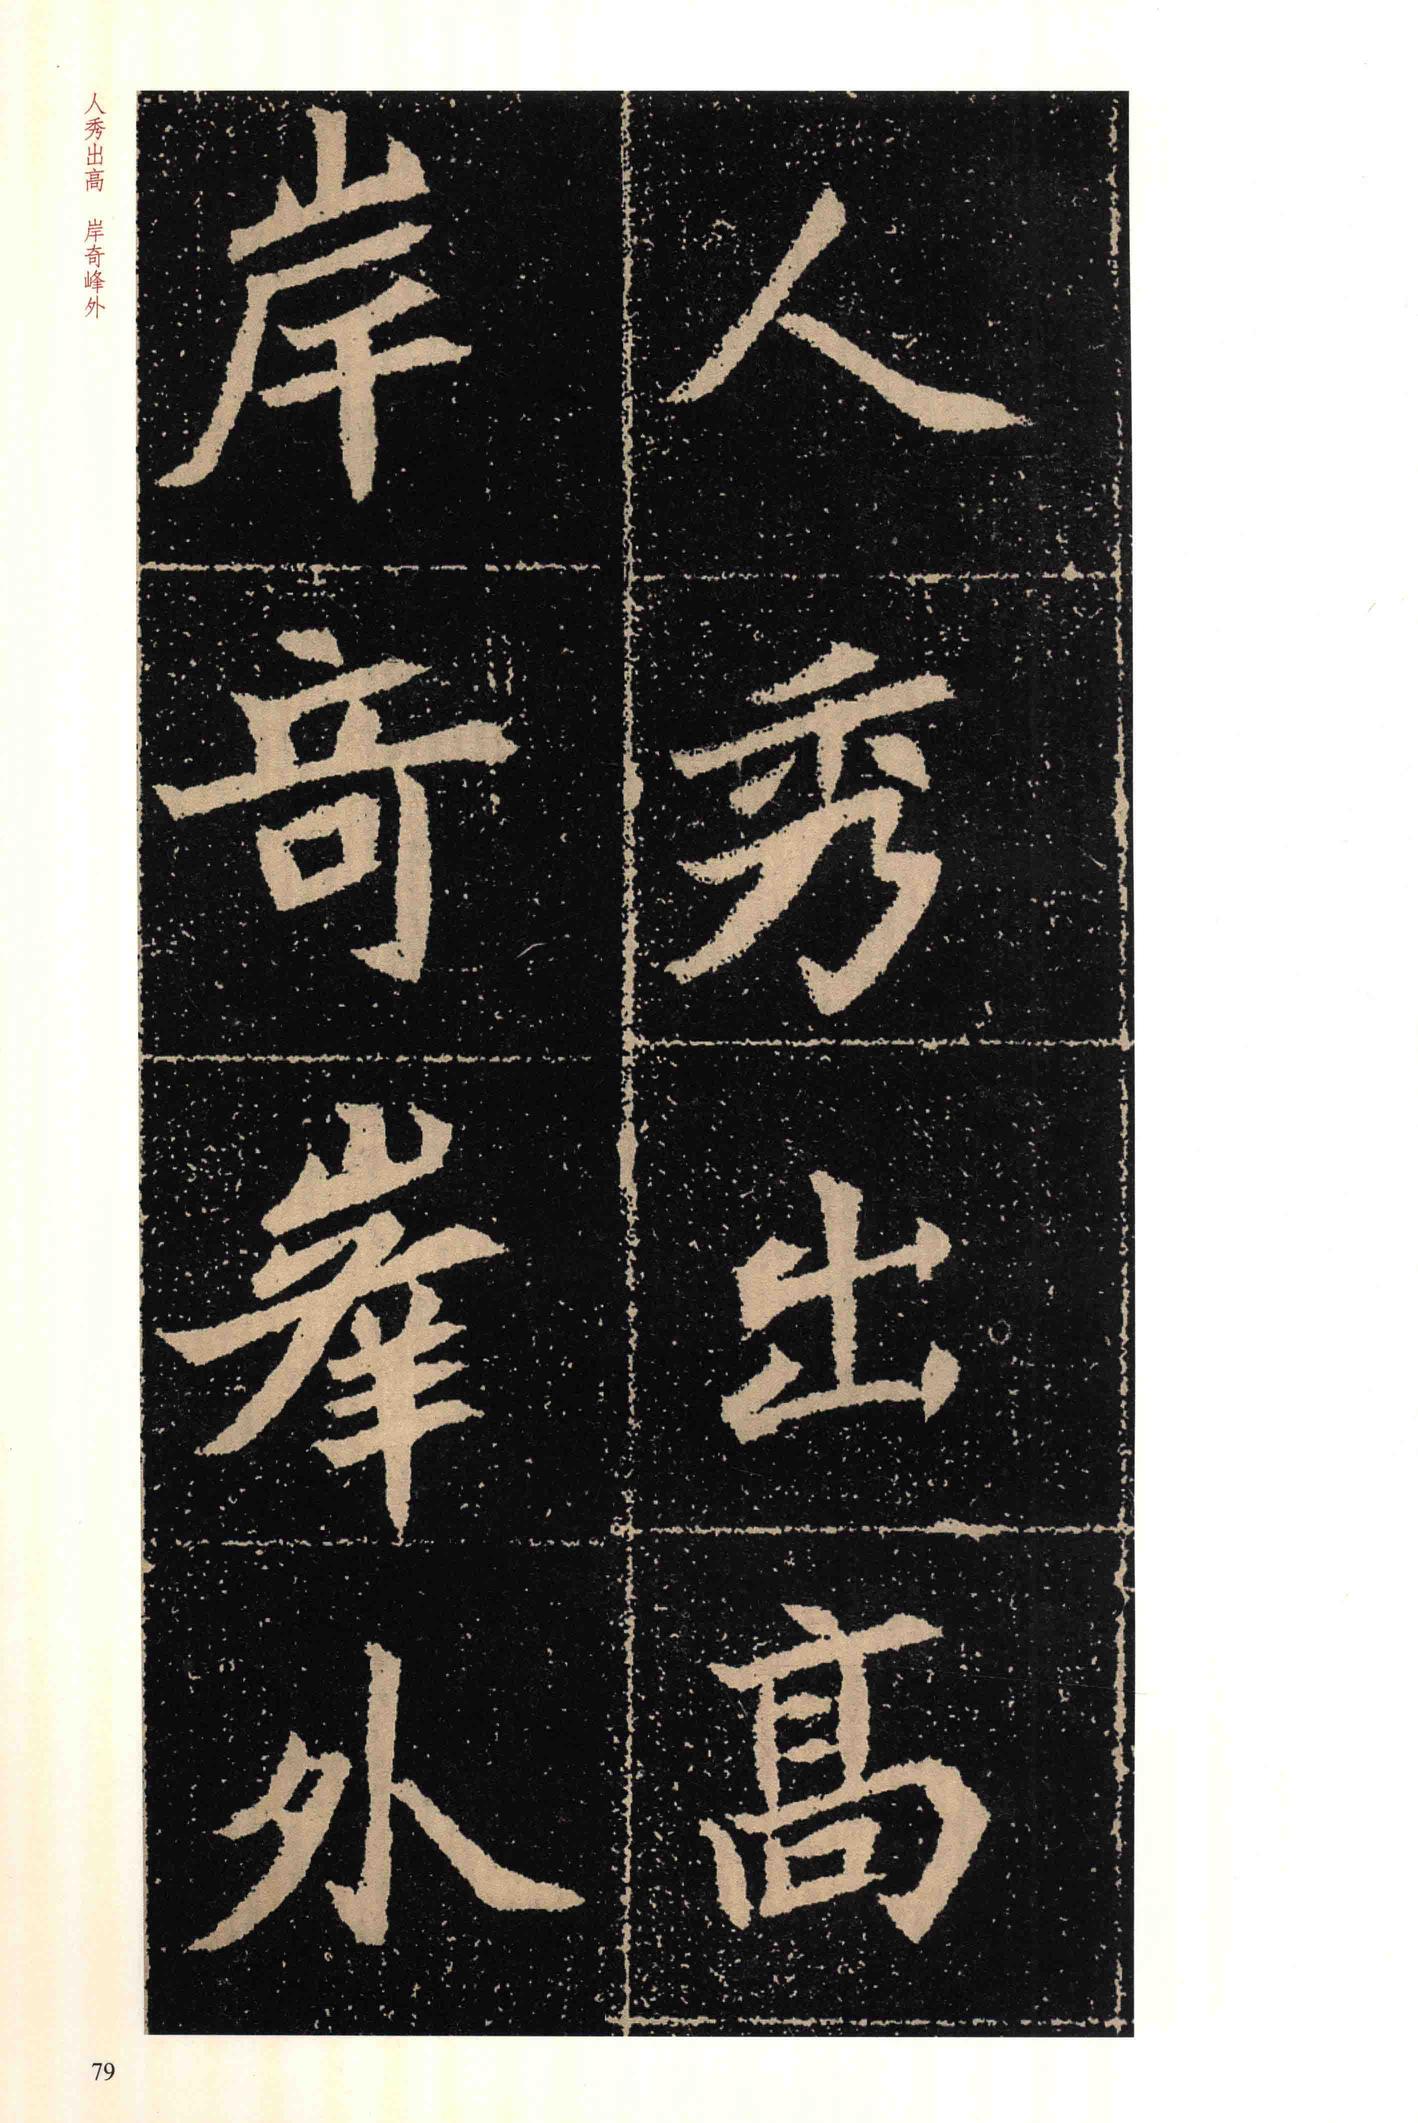 人秀出高
岸奇峯外
人秀出高　岸奇峰外
79